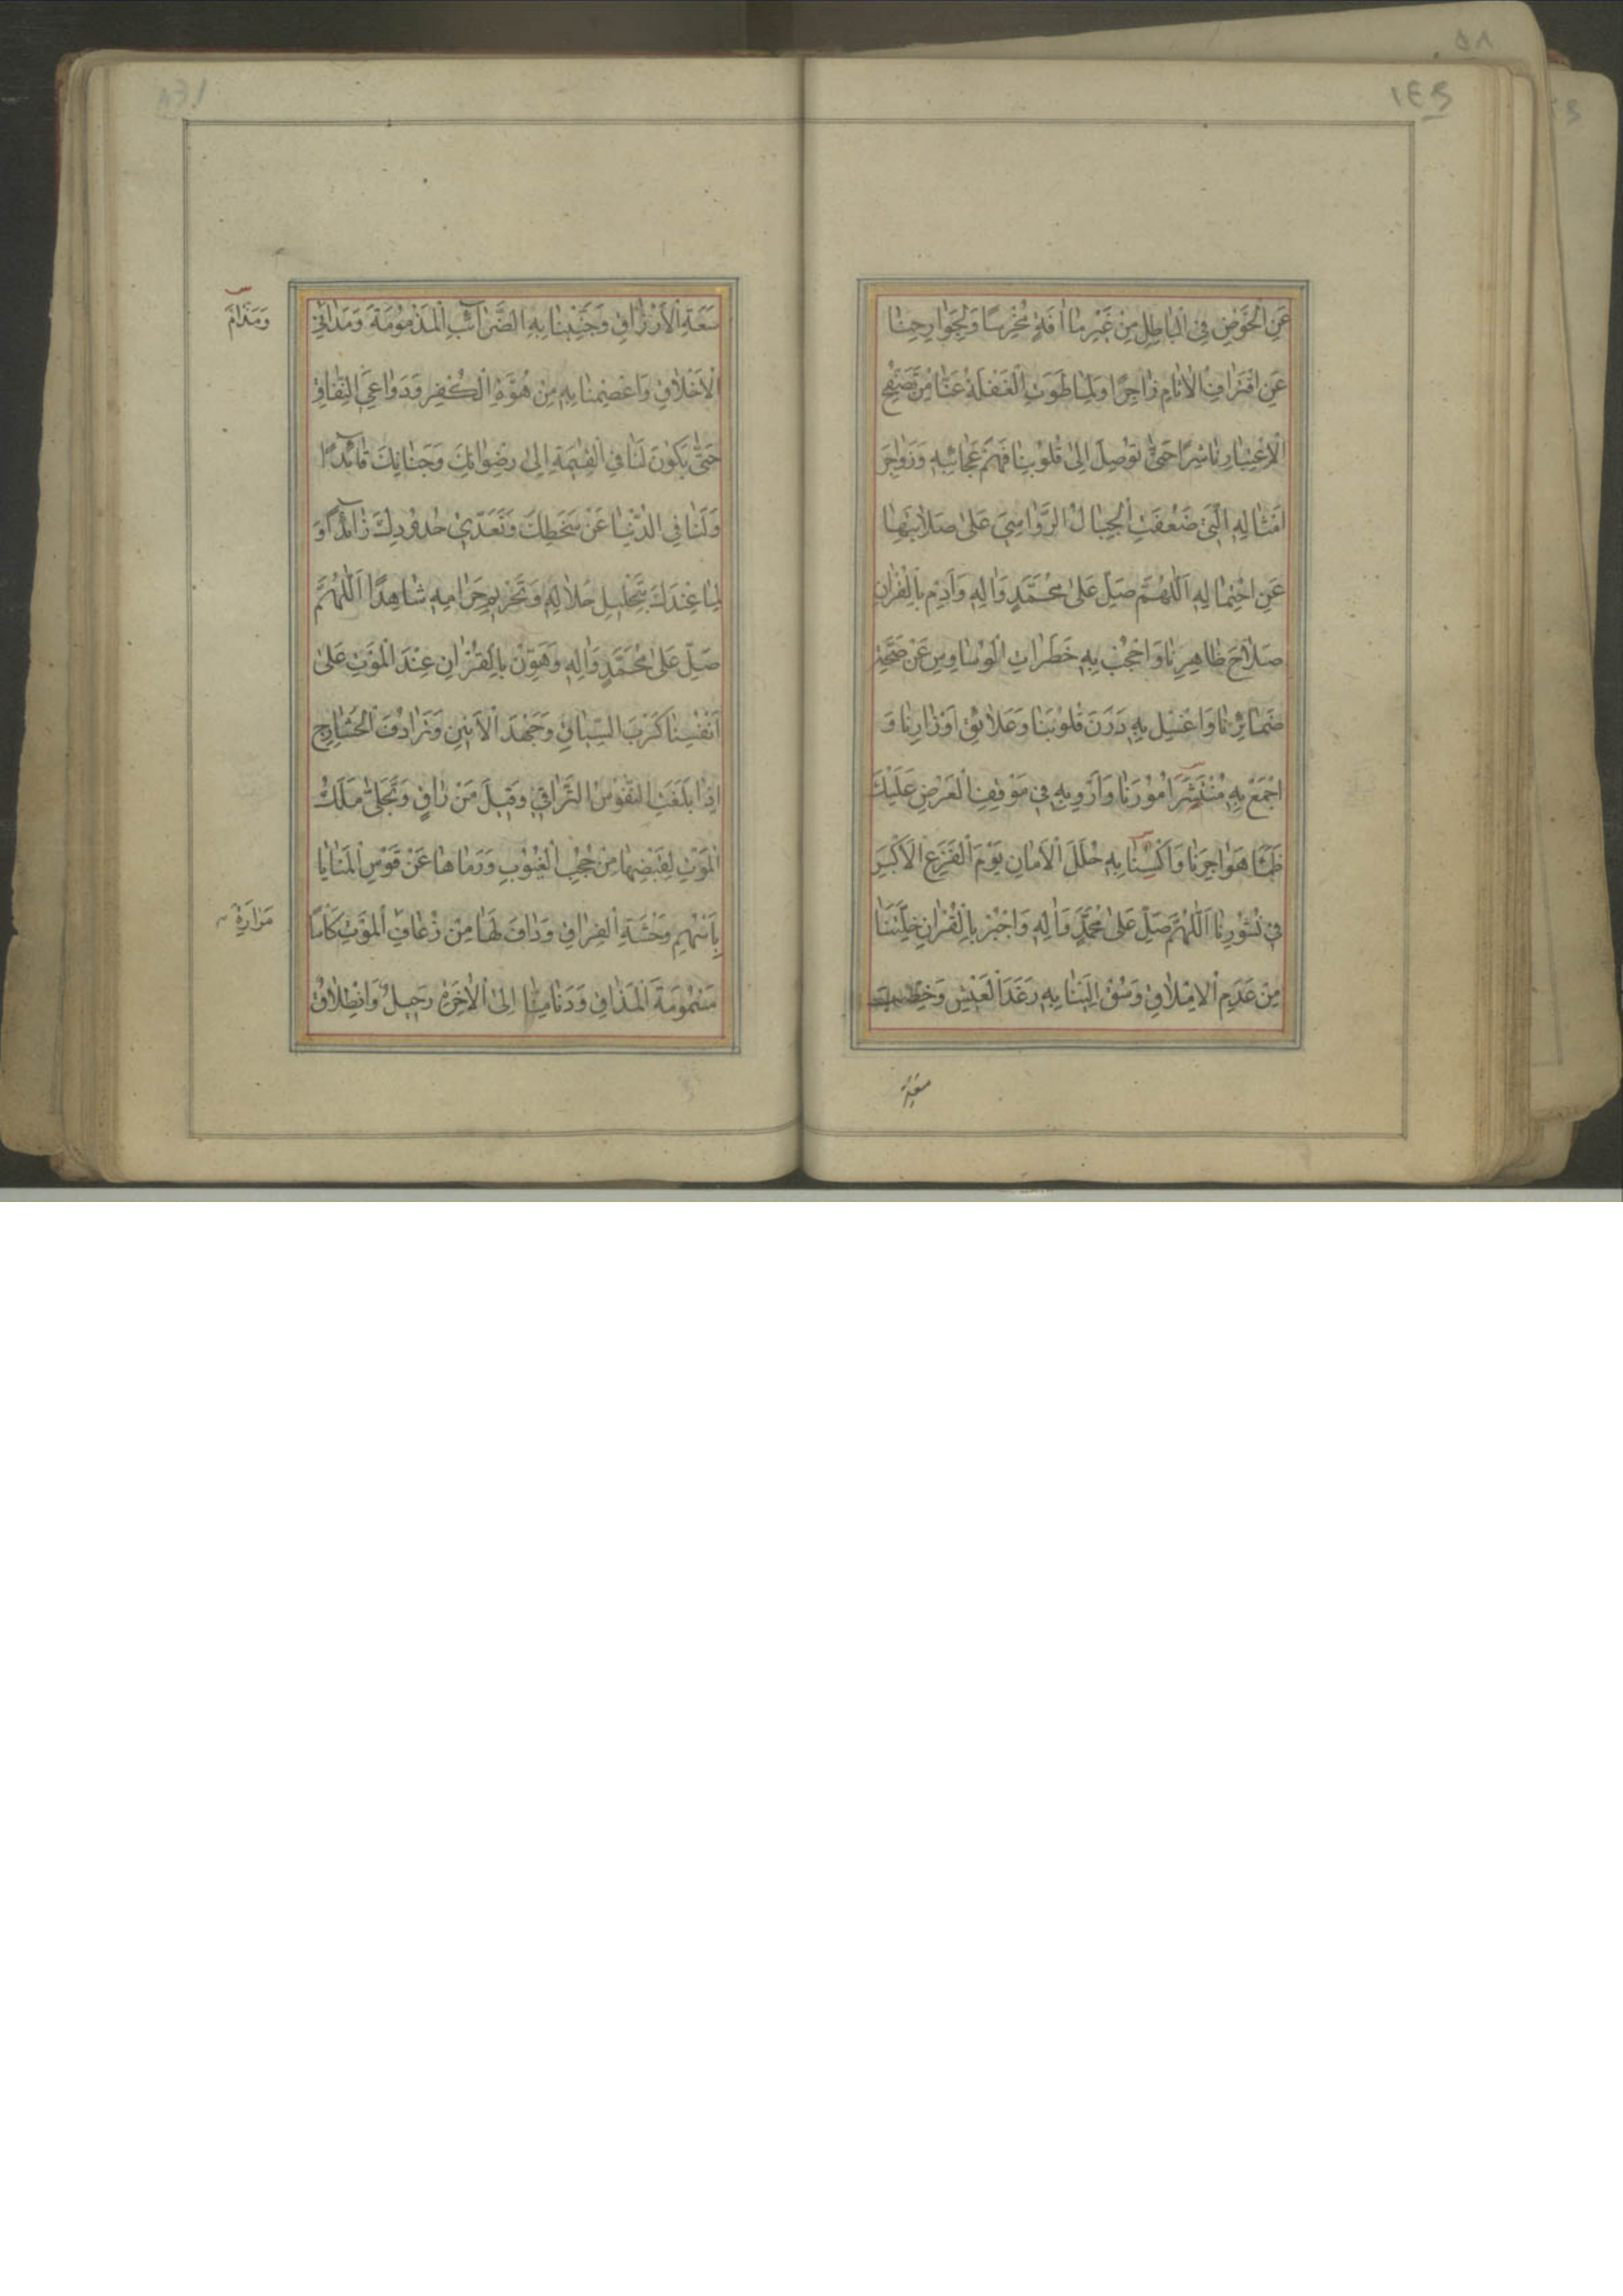 ١٤٩
عَنِ الْخَوْضِ فِي الْبَاطِلِ مِنْ غَيْرِ مَا اٰفَةٍ مُخْرِسًا وَلِجَوَارِحِنَا
عَنِ اقْتِرَافِ الْاٰثَامِ زَاجِرًا وَلِمَا طَوَتِ الْغَفْلَةُ عَنَّا مِنْ تَصَفُّحِ
الْاِعْتِبَارِ نَاشِرًا حَتّٰى تُوصِلَ اِلٰى قُلُوبِنَا فَهْمَ عَجَائِبِهِ وَزَوَاجِرَ
اَمْثَالِهِ الَّتِي ضَعُفَتِ الْجِبَالُ الرَّوَاسِي عَلٰى صَلَابَتِهَا
عَنِ احْتِمَالِهِ اَللّٰهُمَّ صَلِّ عَلٰى مُحَمَّدٍ وَاٰلِهِ وَاَدِمْ بِالْقُرْاٰنِ
صَلَاحَ ظَاهِرِنَا وَاحْجُبْ بِهِ خَطَرَاتِ الْوَسَاوِسِ عَنْ صِحَّةِ
ضَمَائِرِنَا وَاغْسِلْ بِهِ دَرَنَ قُلُوبِنَا وَعَلَائِقَ اَوْزَارِنَا وَ
اجْمَعْ بِهِ مُنْتَشَرَ اُمُورِنَا وَاَرْوِ بِهِ فِي مَوْقِفِ الْعَرْضِ عَلَيْكَ
ظَمَأَ هَوَاجِرِنَا وَاكْسُنَا بِهِ حُلَلَ الْاَمَانِ يَوْمَ الْفَزَعِ الْاَكْبَرِ
فِي نُشُورِنَا اَللّٰهُمَّ صَلِّ عَلٰى مُحَمَّدٍ وَاٰلِهِ وَاجْبُرْ بِالْقُرْاٰنِ خَلَّتَنَا
مِنْ عَدَمِ الْاِمْلَاقِ وَسُقْ اِلَيْنَا بِهِ رَغَدَ الْعَيْشِ وَخِصْبَ
سَعَةِ
سَعَةِ الْاَرْزَاقِ وَجَنِّبْنَا بِهِ الضَّرَائِبَ الْمَذْمُومَةَ وَمَدَانِيَ
وَمَذَامَّ
الْاَخْلَاقِ وَاعْصِمْنَا بِهِ مِنْ هُوَّةِ الْكُفْرِ وَدَوَاعِي النِّفَاقِ
حَتّٰى يَكُونَ لَنَا فِي الْقِيٰمَةِ اِلٰى رِضْوَانِكَ وَجِنَانِكَ قَائِدًا
وَلَنَا فِي الدُّنْيَا عَنْ سَخَطِكَ وَتَعَدِّي حُدُودِكَ ذَائِدًا وَ
لِمَا عِنْدَكَ بِتَحْلِيلِ حَلَالِهِ وَتَحْرِيمِ حَرَامِهِ شَاهِدًا اَللّٰهُمَّ
صَلِّ عَلٰى مُحَمَّدٍ وَاٰلِهِ وَهَوِّنْ بِالْقُرْاٰنِ عِنْدَ الْمَوْتِ عَلٰى
اَنْفُسِنَا كَرْبَ السِّيَاقِ وَجَهْدَ الْاَنِينِ وَتَرَادُفَ الْحَشَارِجِ
اِذَا بَلَغَتِ النُّفُوسُ التَّرَاقِيَ وَقِيلَ مَنْ رَاقٍ وَتَجَلّٰى مَلَكُ
الْمَوْتِ لِقَبْضِهَا مِنْ حُجُبِ الْغُيُوبِ وَرَمَاهَا عَنْ قَوْسِ الْمَنَايَا
بِاَسْهُمِ وَحْشَةِ الْفِرَاقِ وَدَافَ لَهَا مِنْ ذُعَافِ الْمَوْتِ كَأْسًا
مَرَارَةِ
مَسْمُومَةَ الْمَذَاقِ وَدَنَا مِنَّا اِلَى الْاٰخِرَةِ رَحِيلٌ وَانْطِلَاقٌ